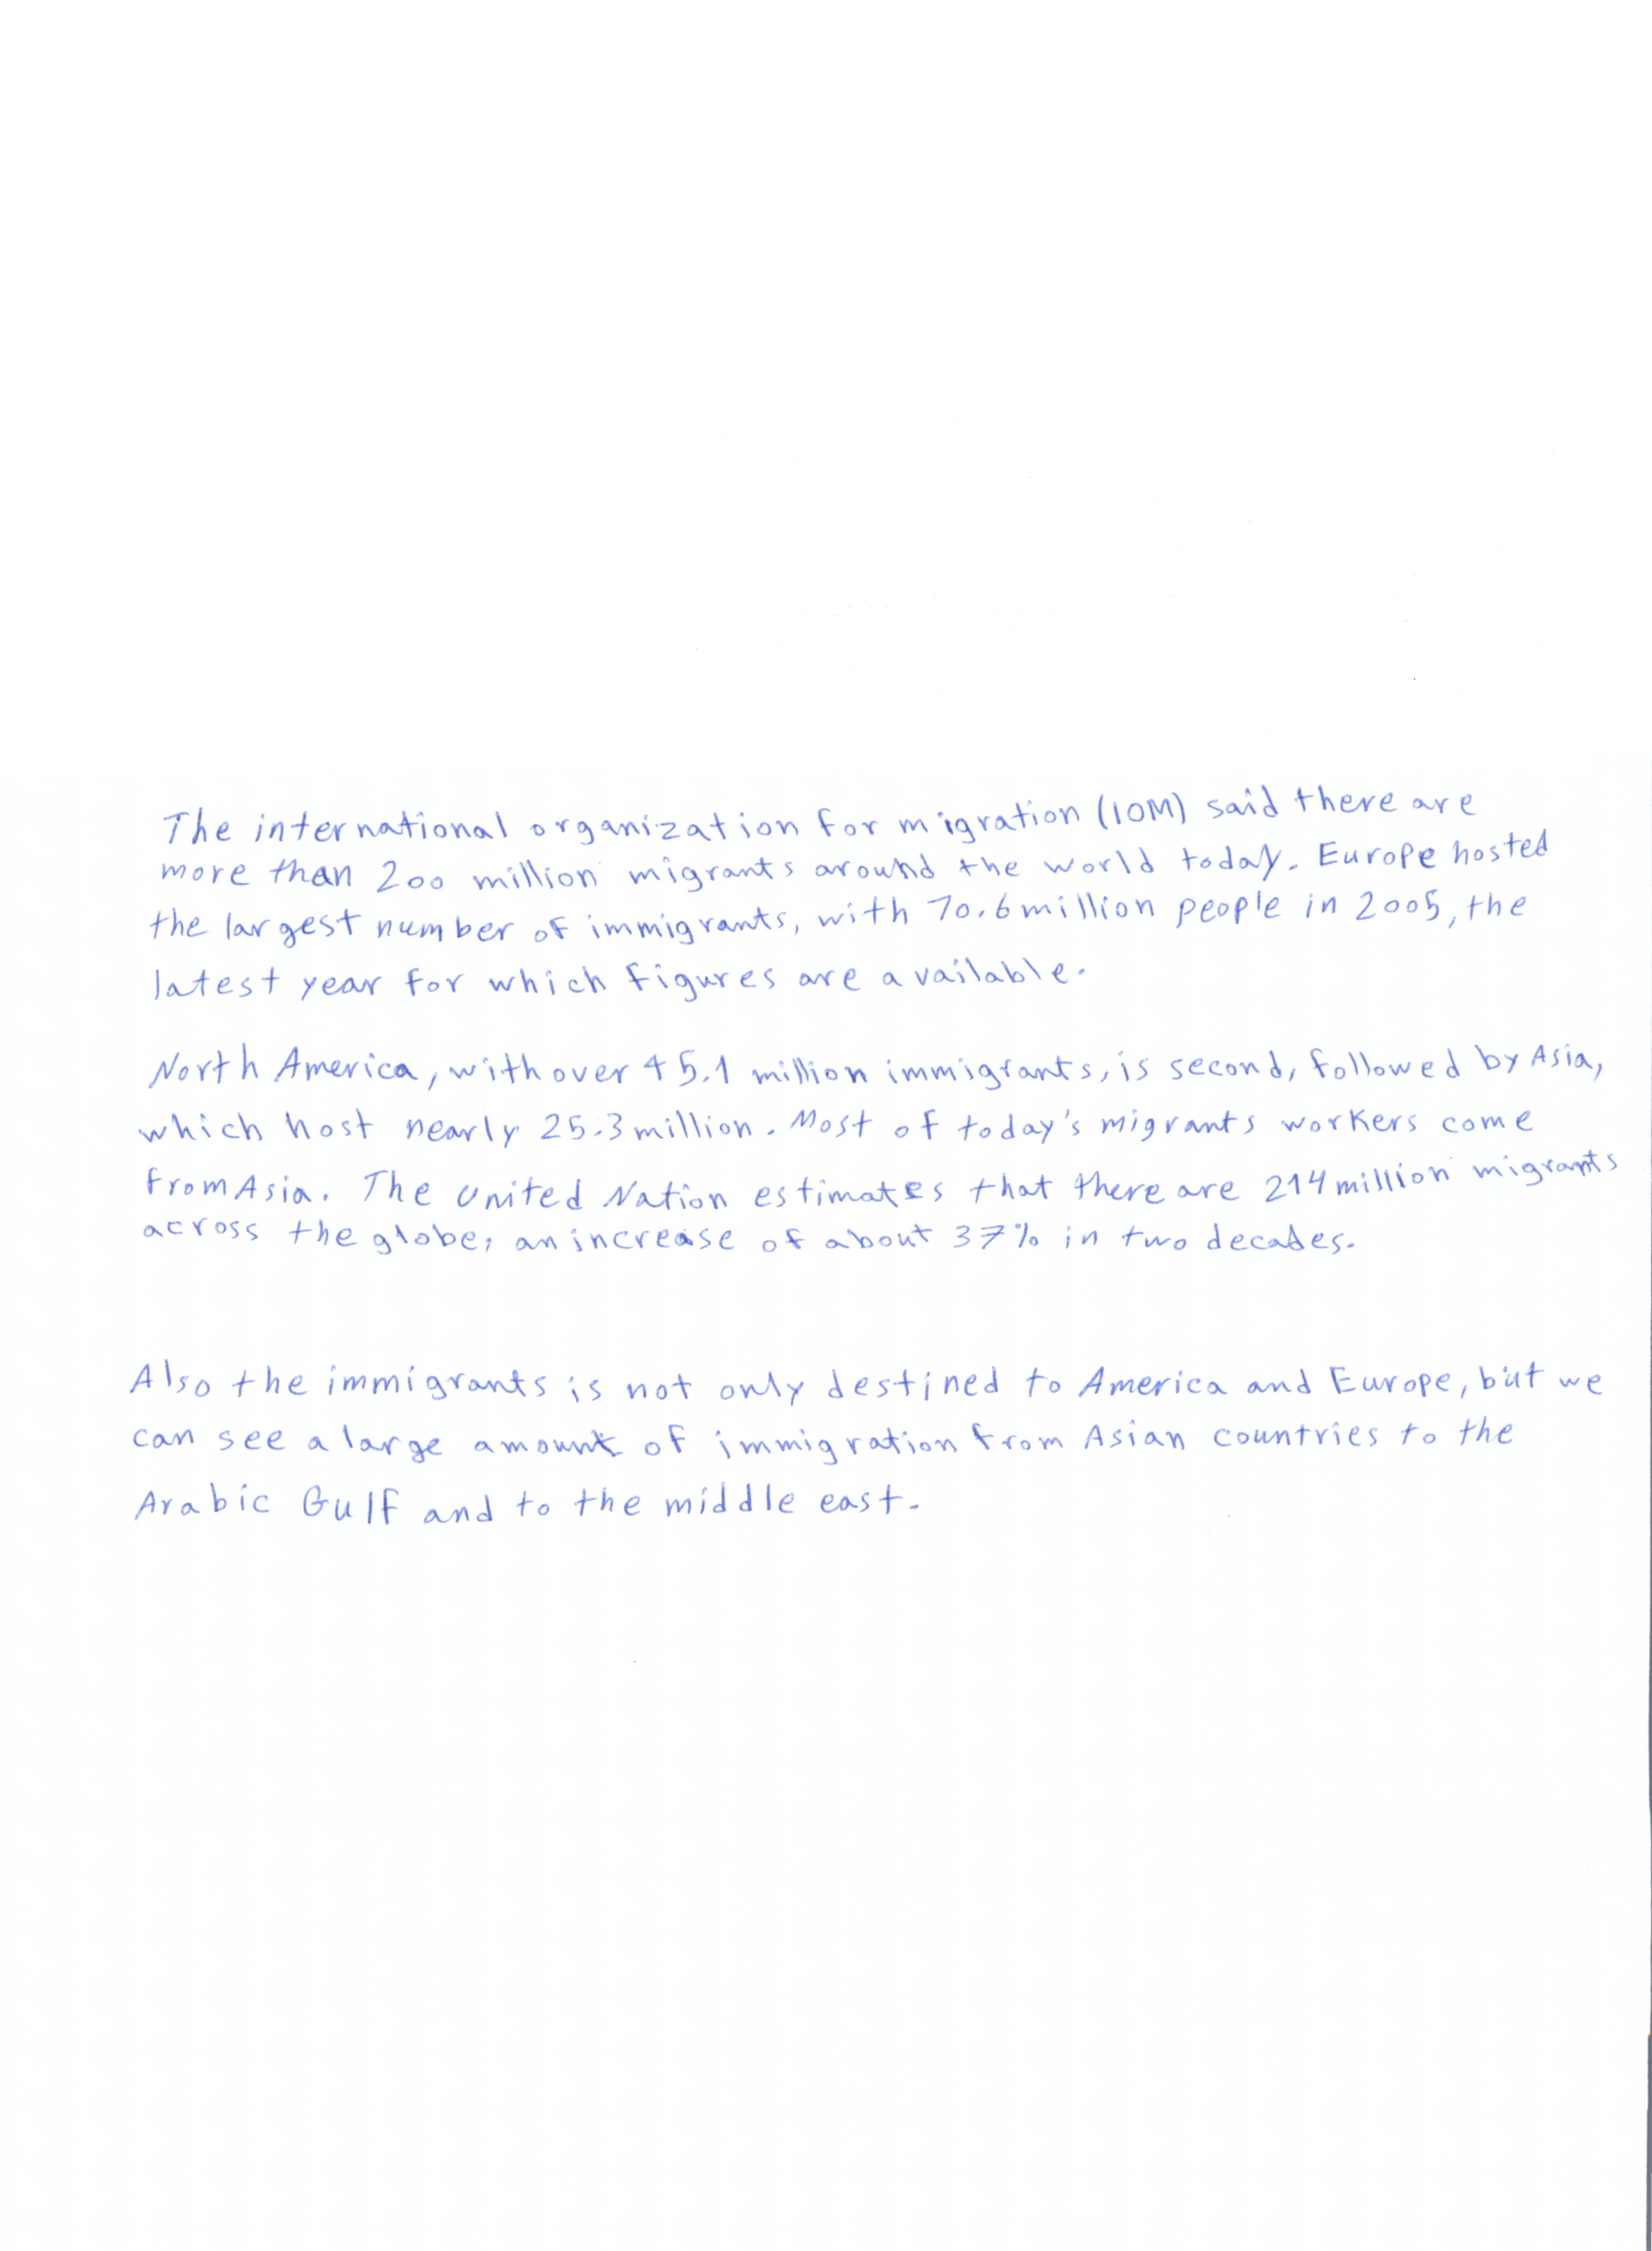 The international organization for migration (IOM) said there are
more than 200 million migrants around the world today. Europe hosted
the largest number of immigrants, with 70.6 million people in 2005, the
latest year for which figures are available.
North America, with over 45.1 million immigrants, is second, followed by Asia,
which host nearly 25.3 million. Most of today's migrants workers come
from Asia. The United Nation estimates that there are 214 million migrants
across the globe, an increase of about 37% in two decades.
Also the immigrants is not only destined to America and Europe, but we
can see a large amount of immigration from Asian countries to the
Arabic Gulf and to the middle east.